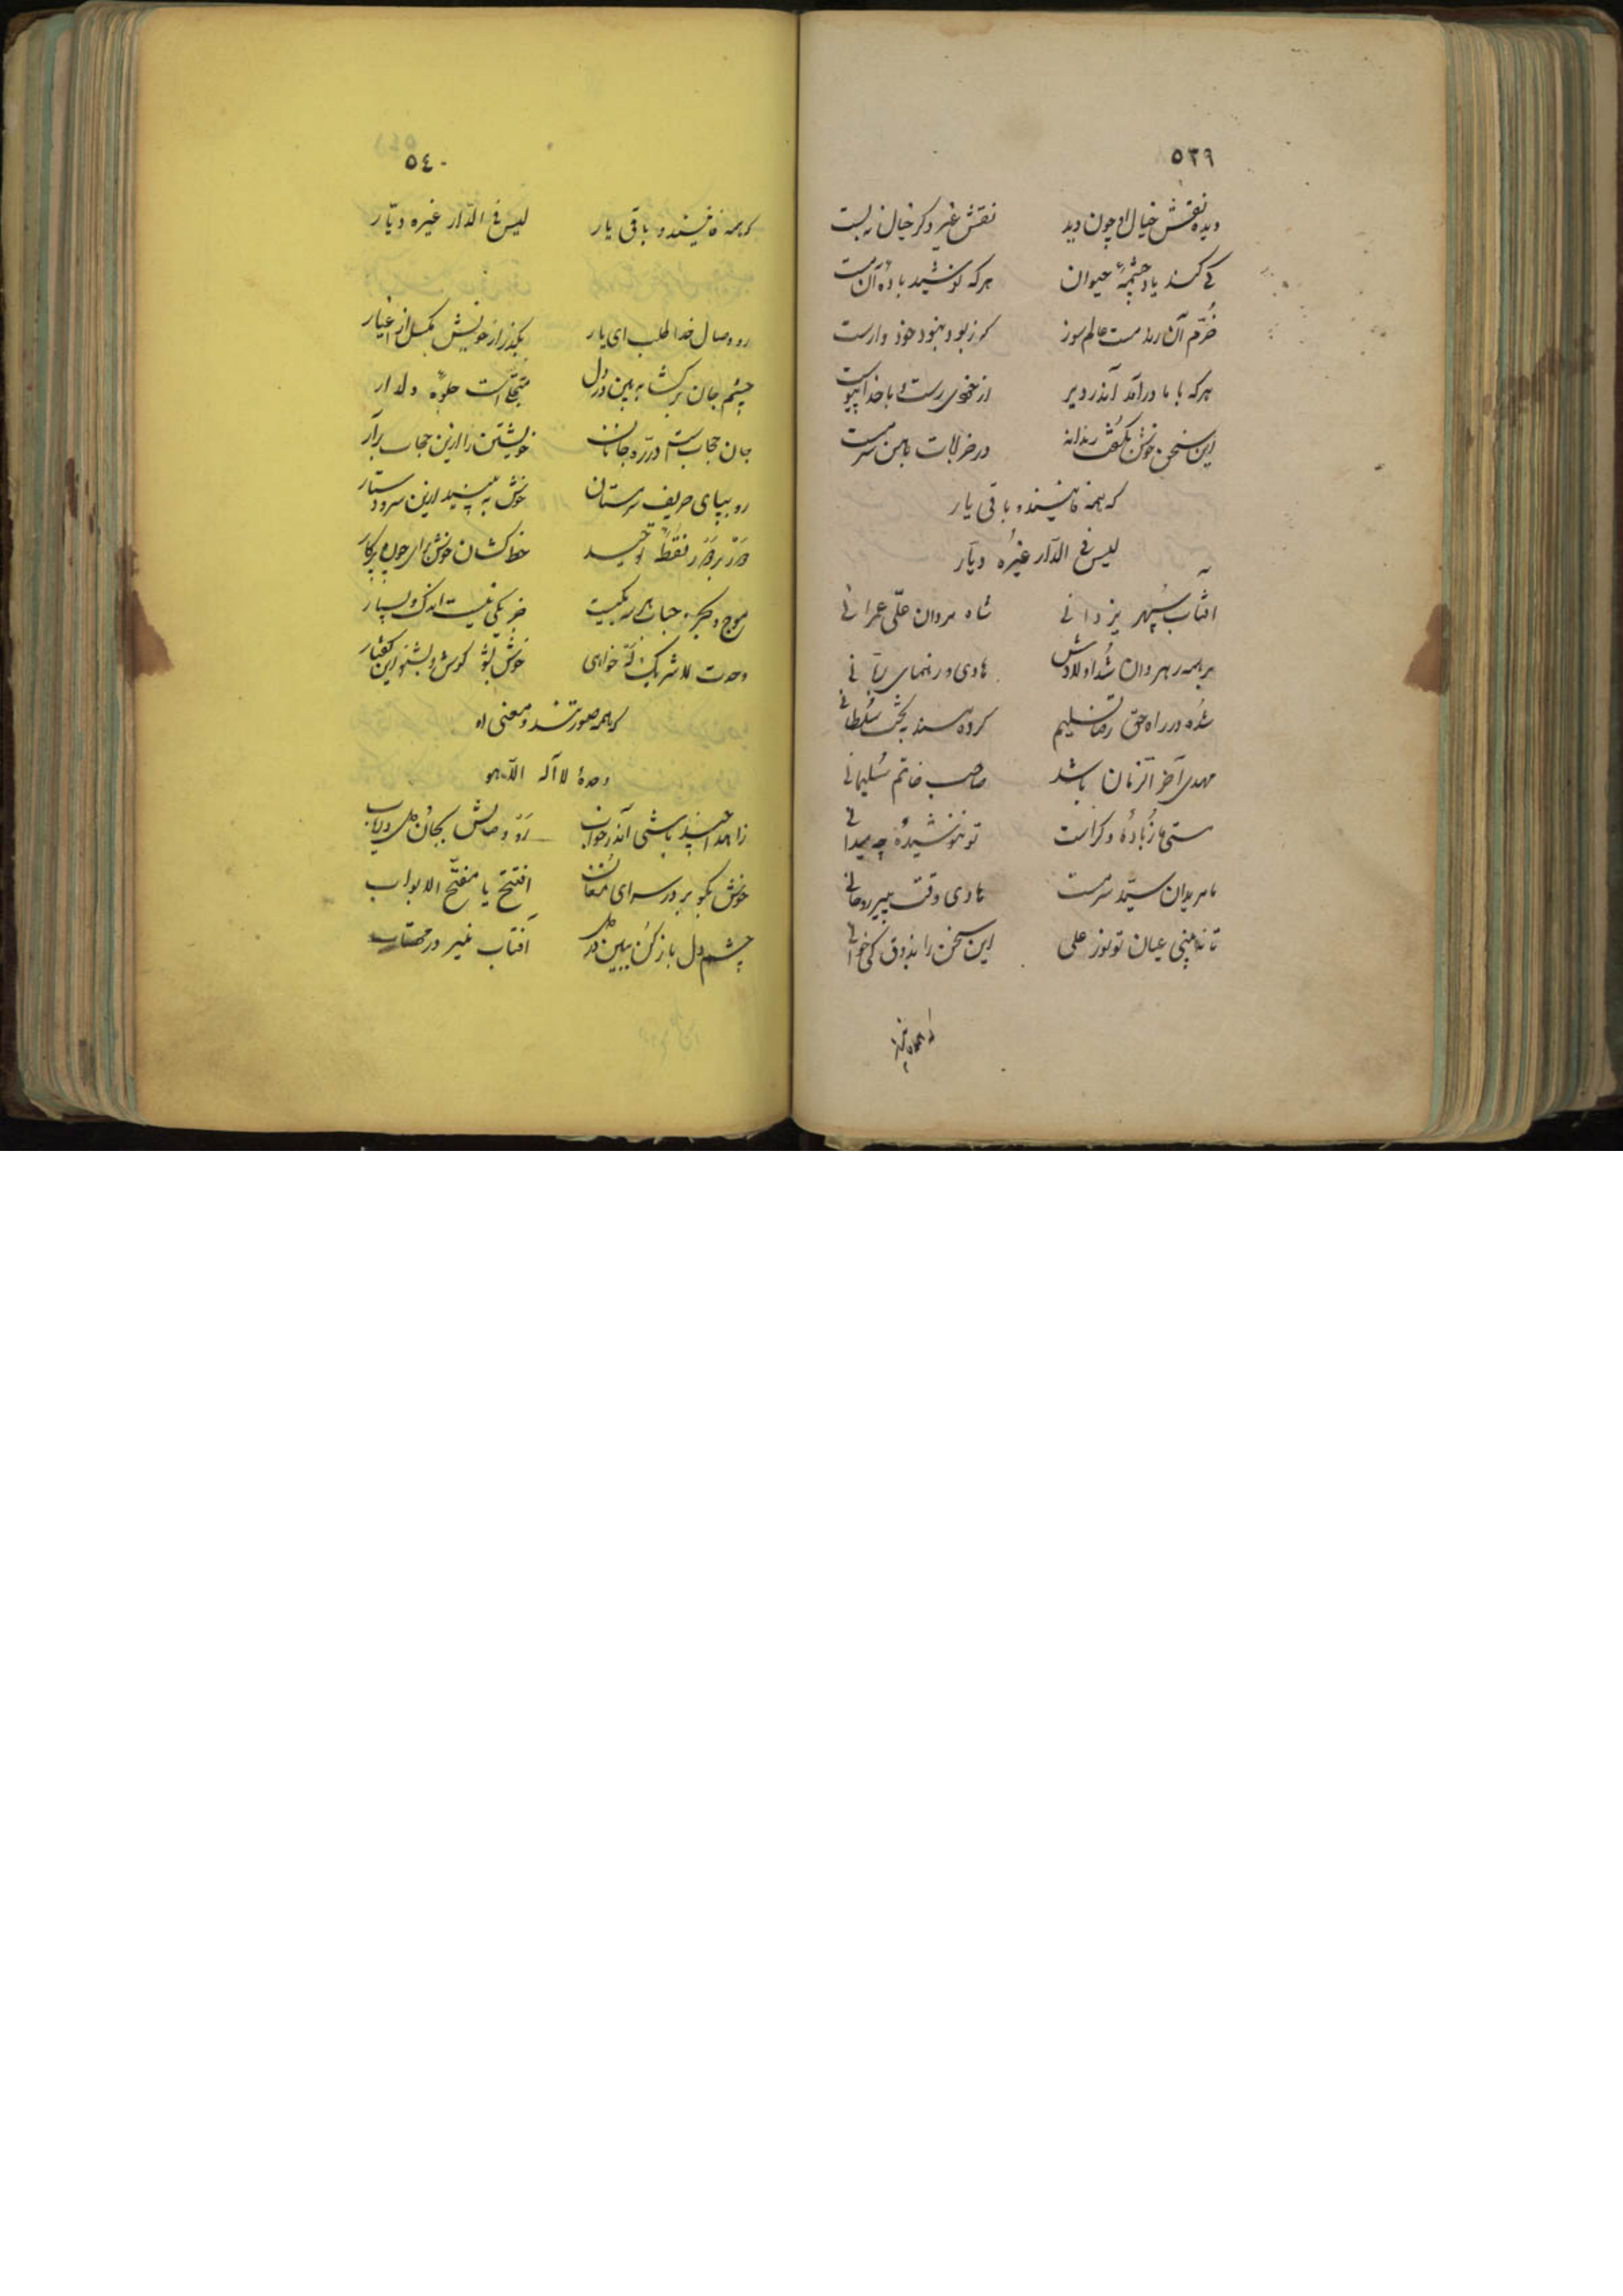 ٥٣٩
دیده نقش خیال او چون دید نقش غیر دگر خیال نه بست
کے کند یاد چشمهٔ حیوان هرکه نوشید بادهٔ آن مست
خُرّم آن رند مست عالم سوز که ز بود و نبود خود وارست
هرکه با ما درآمد آندر دیر از خودی رست و با خدا پیوست
این سخن خوش بگفت رندانه در خرابات با من سرمست
که همه فانیند و باقی یار
لیس فی الدّار غیره دیّار
افتاب سپهر یزدانی شاه مردان علّی عمرانی
بر همه رهروان شُد اولادش هادی و رهنمای ربّانی
شُده در راه حق رضا تسلیم کرده مسند به تخت سُلطانی
مهدی آخر الزّمان باشد صاحب خاتم سُلیمانی
مستی ما ز بادهٔ دگر است تو ننوشیدهٔ چه میدانی
ما مریدان سیّد سرمست هادی وقت پیر روحانی
تا نه بینی عیان تو نور علی این سخن را بذوق کی خوانی
که همه فانیند
٥٤٠
که همه فانیند و باقی یار لیس فی الدّار غیره دیّار
رو وصال خدا طلب ای یار بگذر از خویش بگسل از اغیار
چشم جان برگشا به بین در دل متجلّی است جلوهٔ دلدار
جان حجابست در ره جانان خویشتن را ازین حجاب برآر
رو بپای حریف سرمستان خوش به پیچید ازین سر و دستار
دَور بر دَور نقطهٔ توحید خط کشان خوش برای چون پرگار
موج و بحر و حباب هر سه یکیست جز یکی نیست اندک و بسیار
وحدت لا شریک لَهُ خواهی خوش بشو گوش و بشنو این گفتار
که همه صورتند و معنی او
وحدهٔ لا آله الّا هو
زاهدا چند باشی آندر خواب رَو وصالش بجان و دل دریاب
خوش بگو بر در سرای مُغان افتتح یا مفتّح الابواب
چشم دل باز کن ببین در دل آفتاب منیر در مهتاب